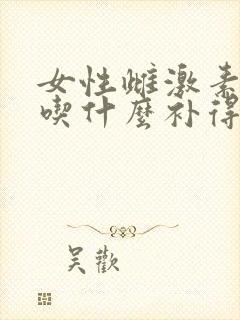 女性雌激素
喫什麼补得
吴歡